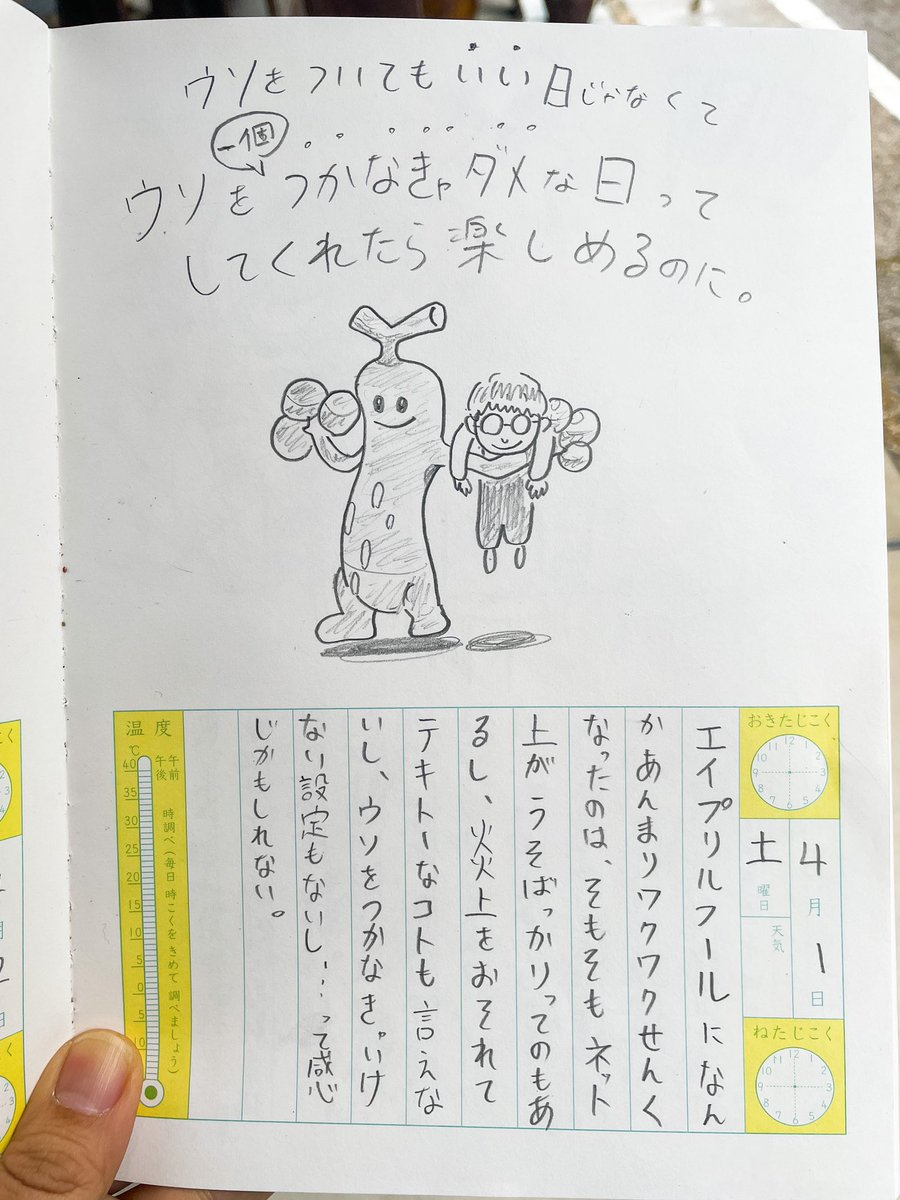 ウソをついてもいい日じゃなくて
一個
ウソをつかなきゃダメな日って
してくれたら楽しめるのに。
おきたじこく
12
1
2
3
4
5
6
7
8
9
10
11
4月1日
土曜日
天気
ねたじこく
12
1
2
3
4
5
6
7
8
9
10
11
エイプリルフールになん
かあんまりワクワクせんく
なったのは、そもそもネット
上がうそばっかりってのもあ
るし、火炎上をおそれて
テキトーなコトも言えな
いし、ウソをつかなきゃいけ
ない設定もないし...って感
じかもしれない。
温度
℃
午前
午後
時調べ(毎日時こくをきめて調べましょう)
40
35
30
25
20
15
10
5
0
5
10